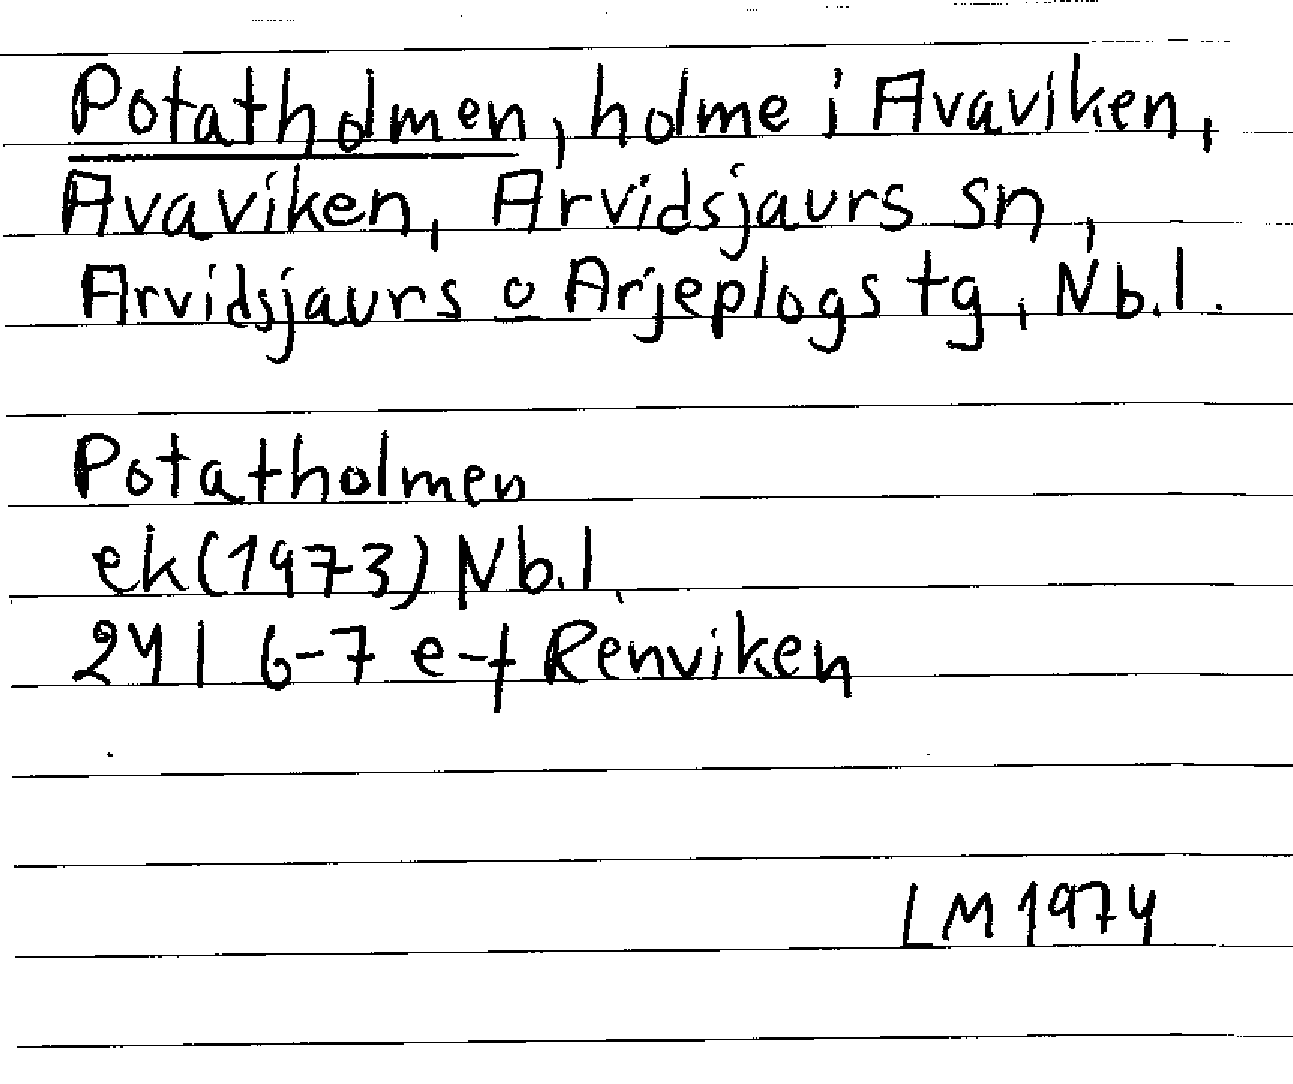 Potatholmen, holme i Avaviken,
Avaviken, Arvidsjaurs sn,
Arvidsjaurs o Arjeplogs tg, Nb.l.
Potatholmen
ek (1973) Nb.l.
24 I 6-7 e-f Renviken
LM 1974